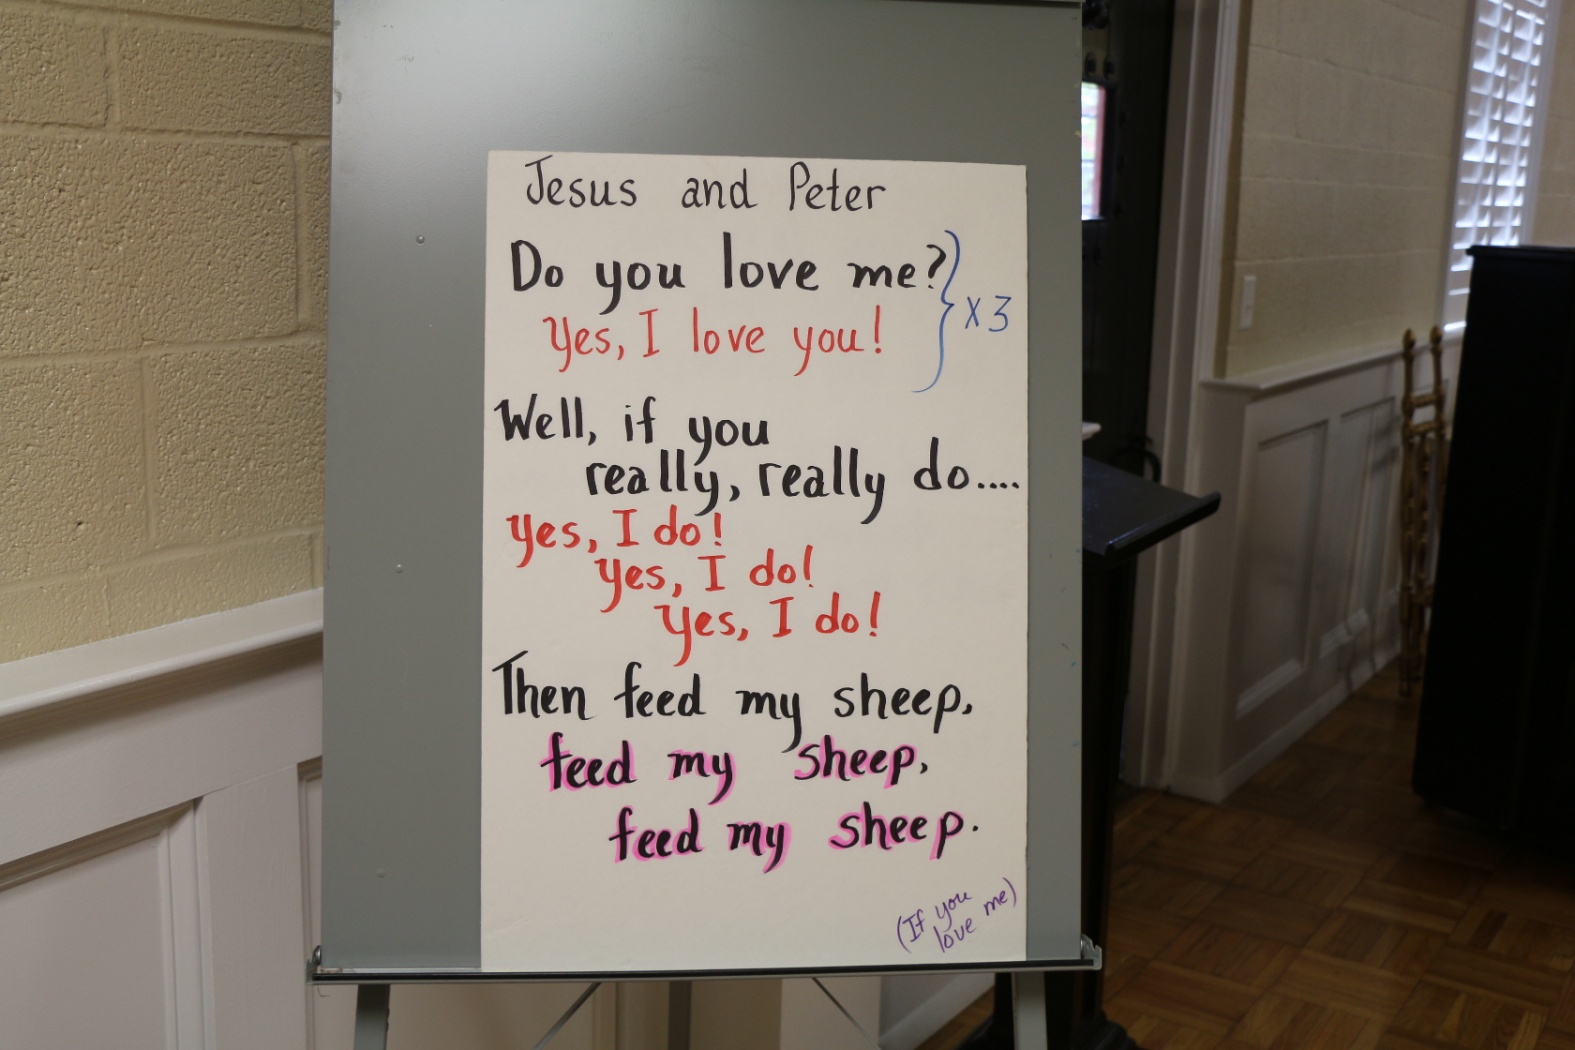 Jesus and Peter
Do you love me?
Yes, I love you!
x 3
Well, if you
really, really do....
Yes, I do!
Yes, I do!
Yes, I do!
Then feed my sheep,
feed my sheep,
feed my sheep.
(If you
love me)